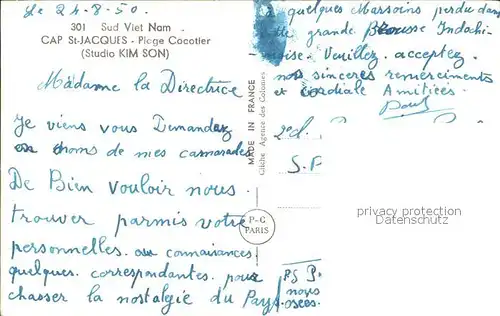 Le 24-8-50.
301 Sud Viet Nam
CAP St-JACQUES - Plage Cocotier
(Studio KIM SON)
Madame la Directrice
Je viens vous Demandez
au noms de mes camarades
De Bien vouloir nous.
trouver parmis votre
personnelles. aux connaisances
quelques. correspondantes. pour
chasser la nostalgie du Pays.
MADE IN FRANCE
Cliché Agence des Colonies
P-C
PARIS
a quelques Marsoins perdu dans
grande Brousse Indochi-
noise. Veuillez. acceptez.
nos sinceres remerciments
et cordiale Amitiées.
2°d.
S.F
PS P.
privacy protection
Datenschutz